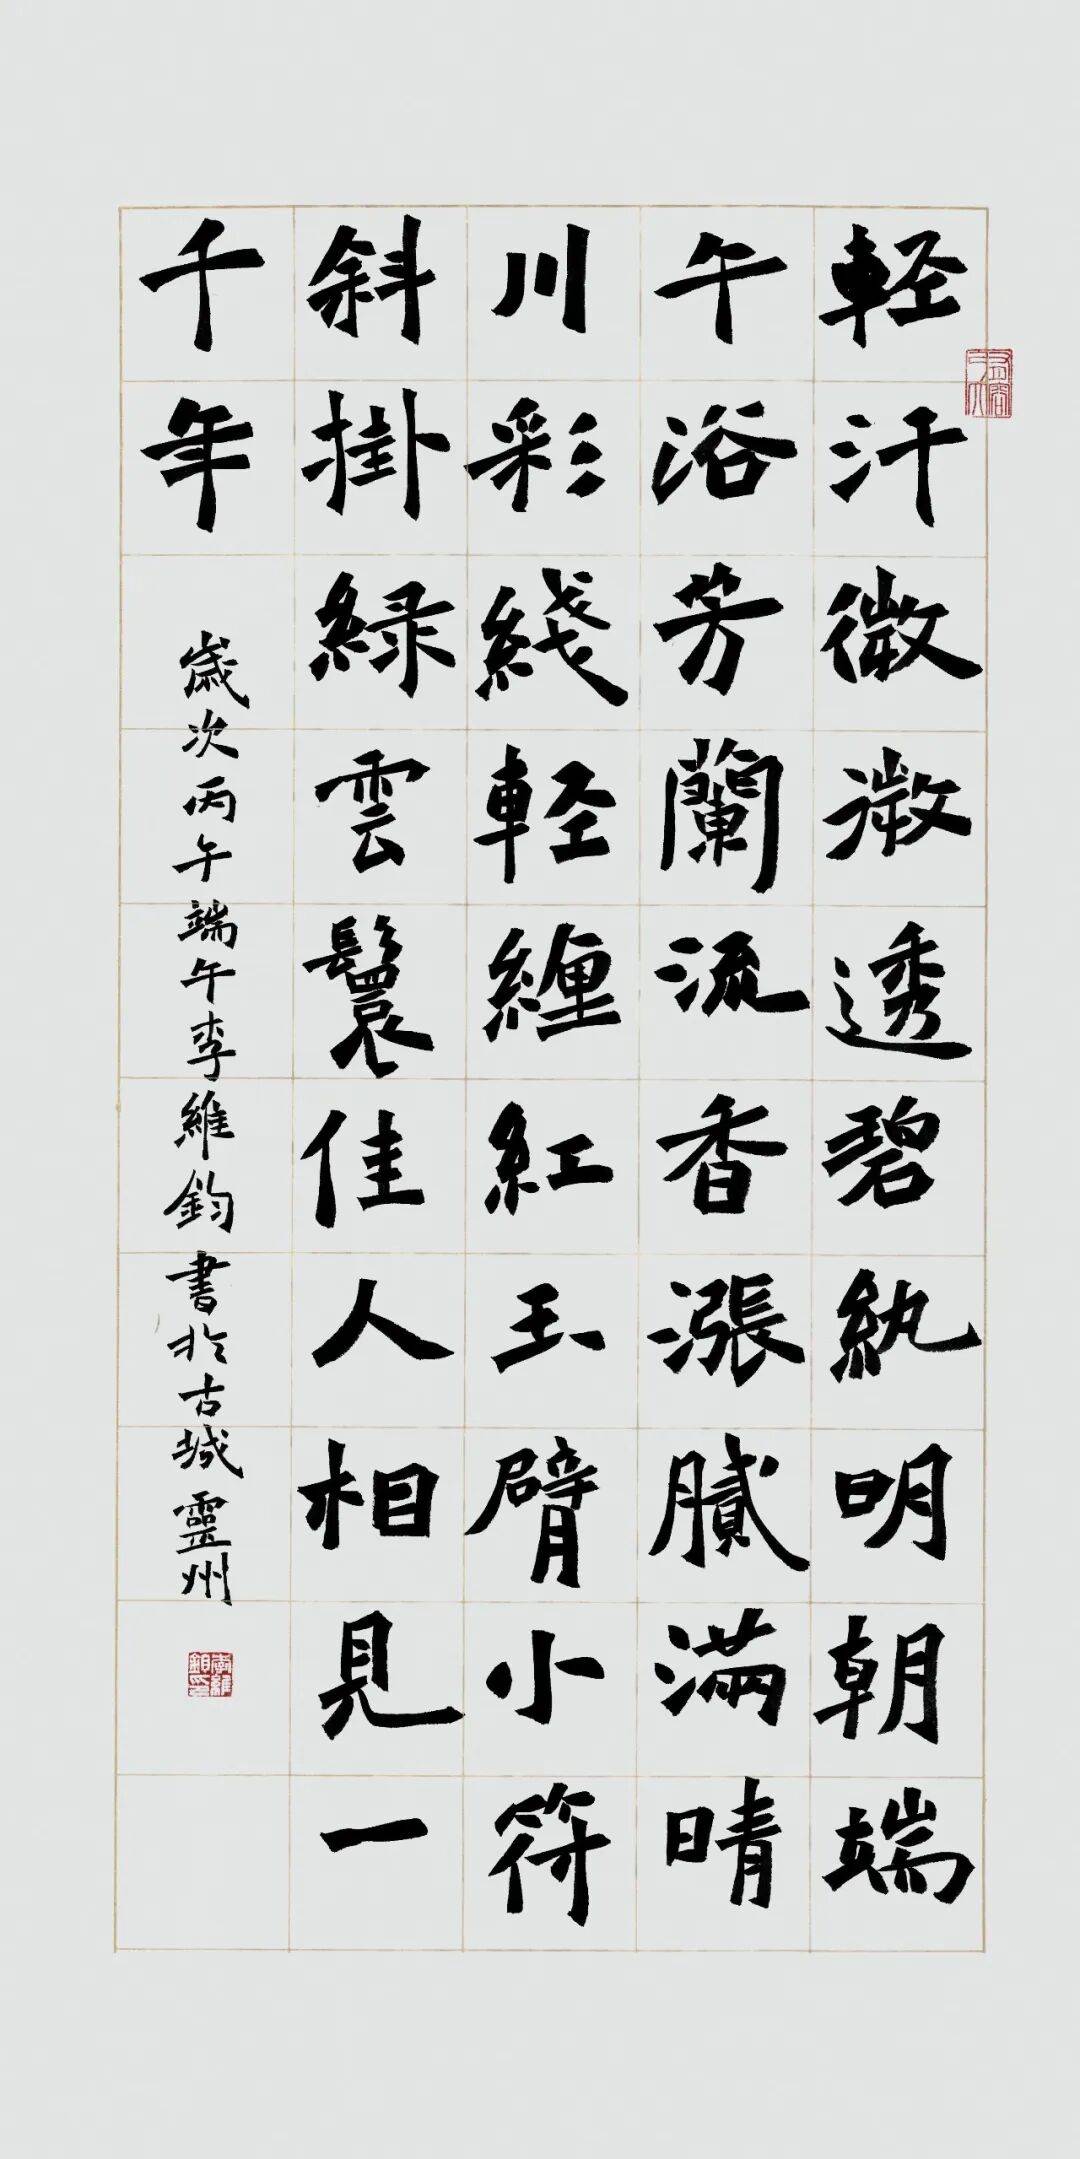 輕汗微微透碧紈明朝端
午浴芳蘭流香漲膩滿晴
川彩綫輕纏紅玉臂小符
斜掛緑雲鬟佳人相見一
千年
歲次丙午端午李維鈞書於古城靈州